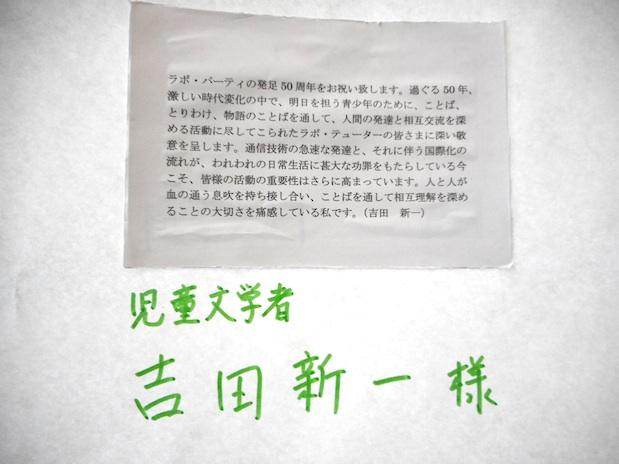 ラボ・パーティの発足50周年をお祝い致します。過ぐる50年、
激しい時代変化の中で、明日を担う青少年のために、ことば、
とりわけ、物語のことばを通して、人間の発達と相互交流を深
める活動に尽してこられたラボ・テューターの皆さまに深い敬
意を呈します。通信技術の急速な発達と、それに伴う国際化の
流れが、われわれの日常生活に甚大な功罪をもたらしている今
こそ、皆様の活動の重要性はさらに高まっています。人と人が
血の通う息吹を持ち接し合い、ことばを通して相互理解を深め
ることの大切さを痛感している私です。（吉田 新一）
児童文学者
吉田新一様